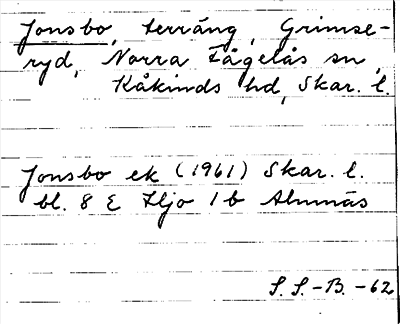 Jonsbo, terräng, Grimse-
ryd, Norra Fågelås sn,
Kåkinds hd, Skar. l.
Jonsbo ek (1961) Skar. l.
bl. 8 E Hjo 1b Almnäs
S. S.-B. -62